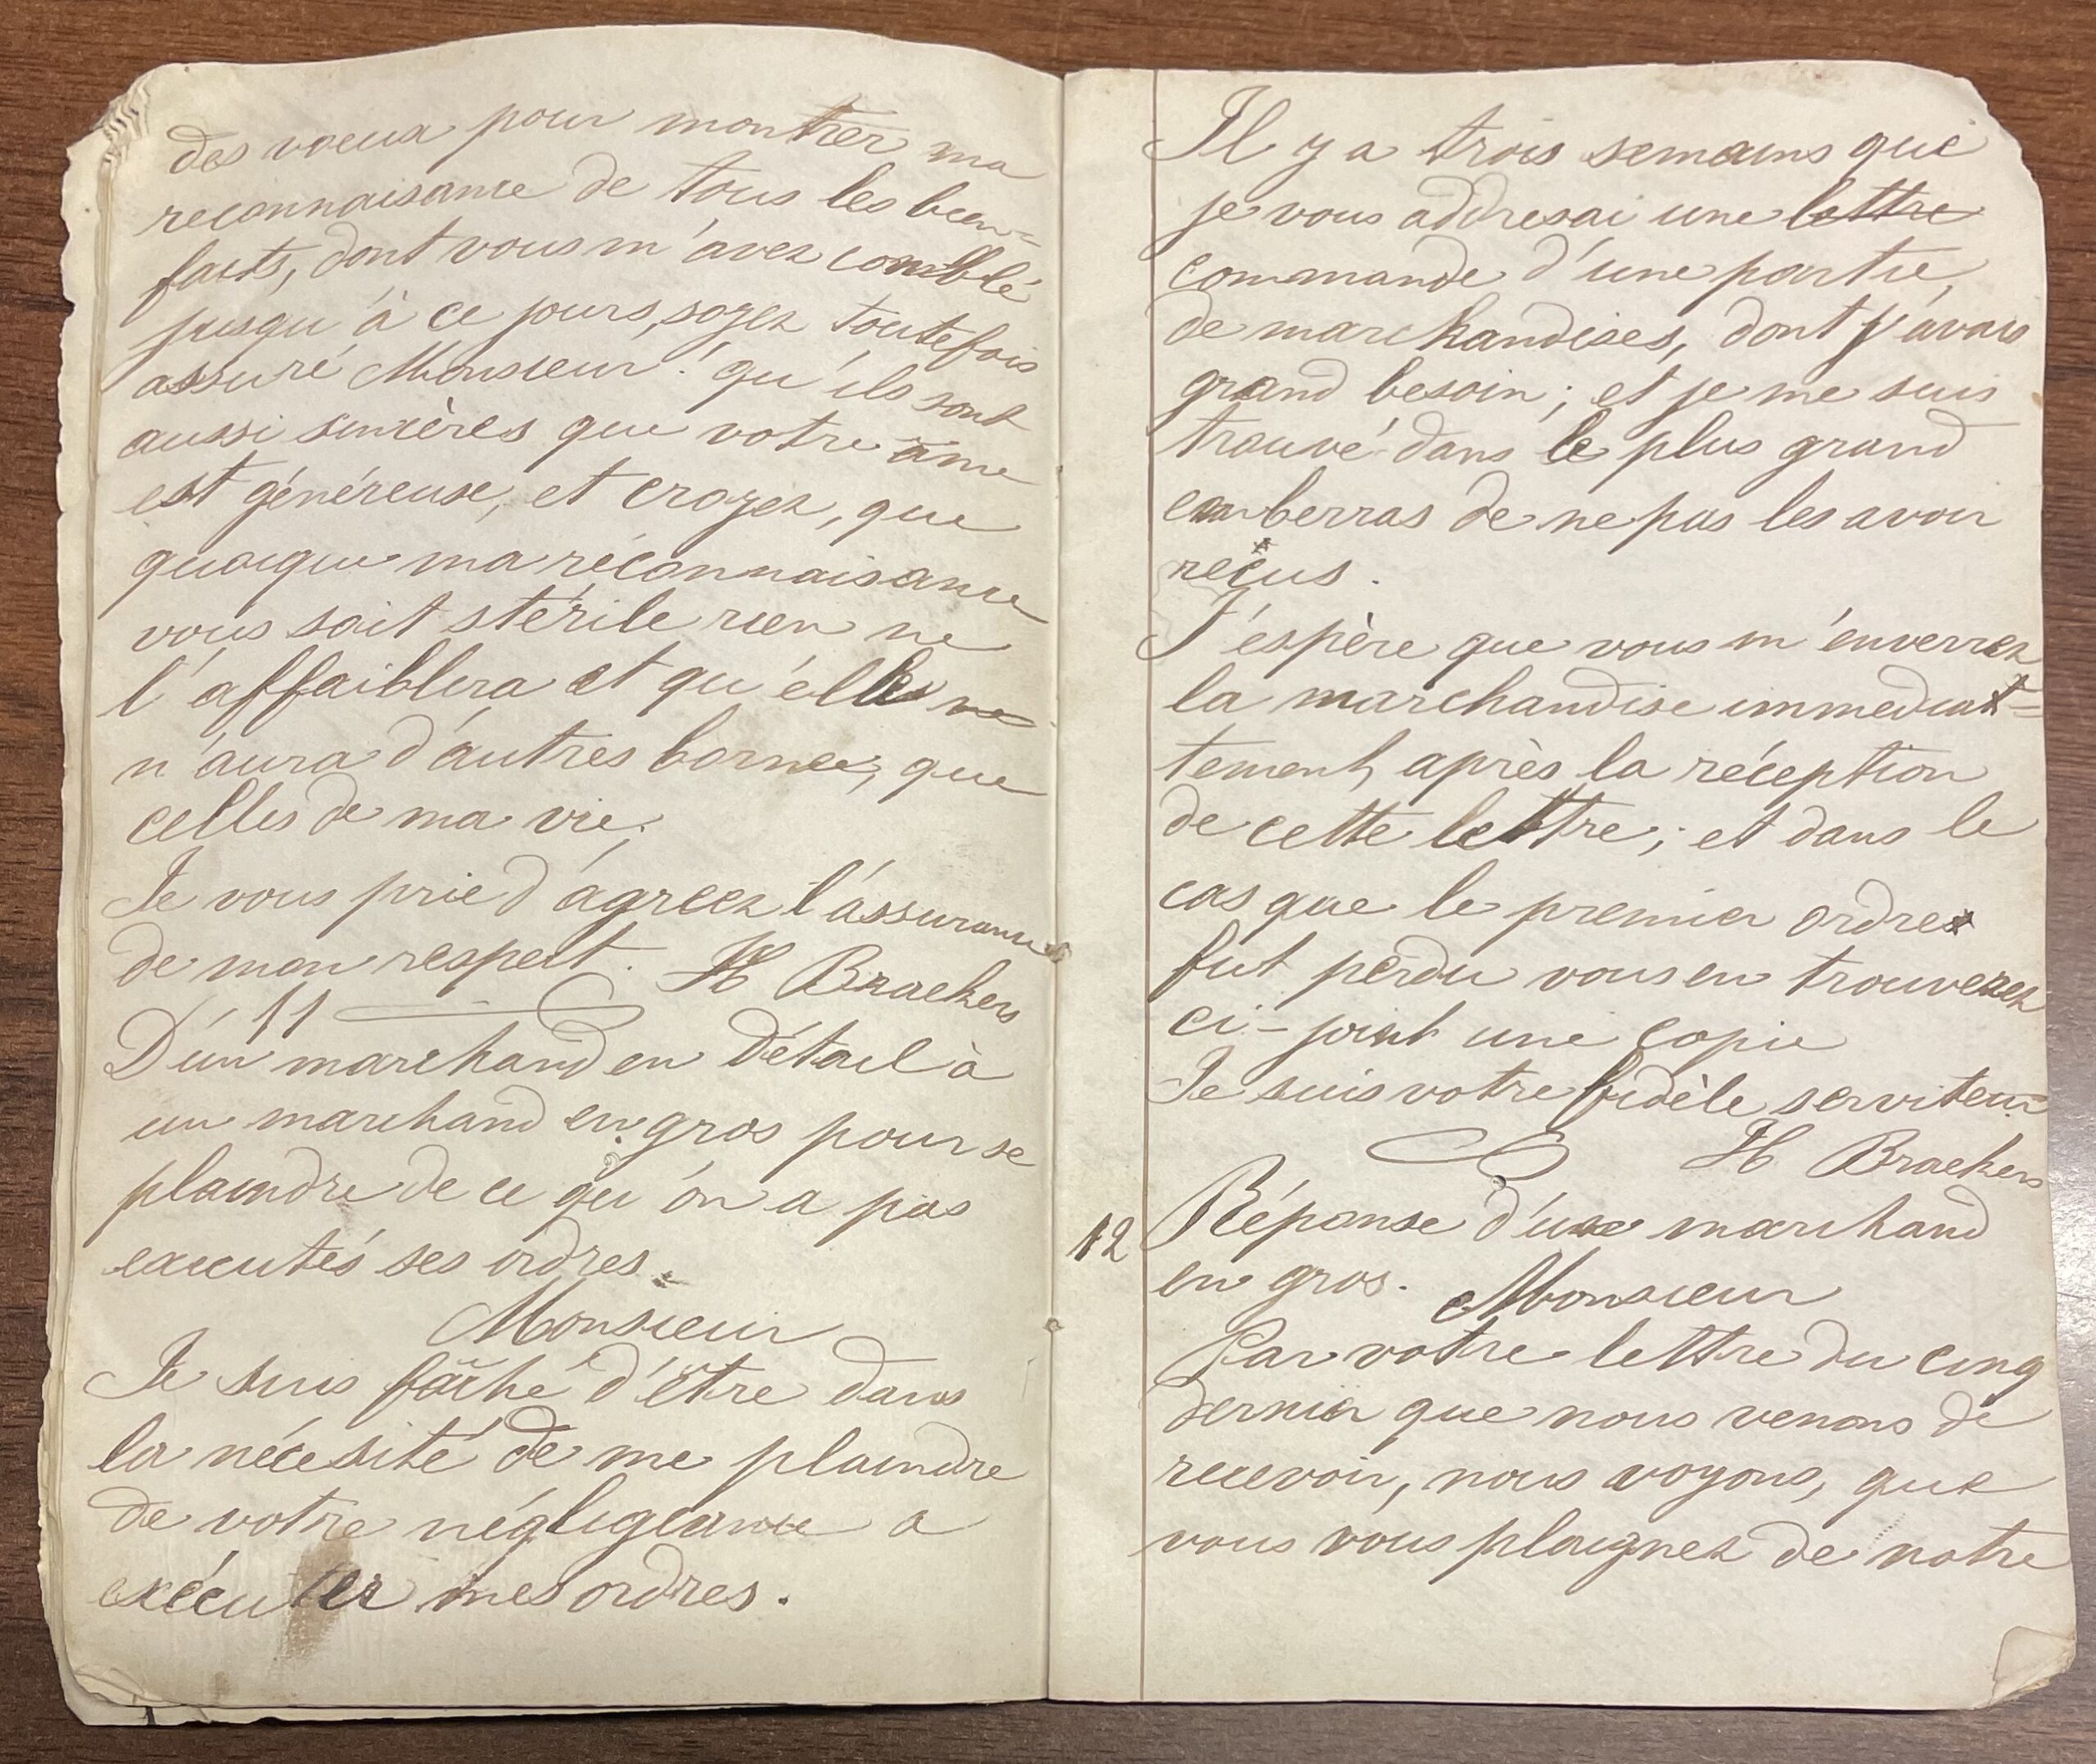 des voeux pour montrer ma
reconnaisance de tous les bien=
faits, dont vous m'avez comblé
jusqu'à ce jours, soyez toutefois
assuré Monsieur! qu'ils sont
aussi sincères que votre âme
est généreuse, et croyez, que
quoique ma réconnaisance
vous soit stérile rien ne
l'affaiblira et qu'elle ne
n'aura d'autres bornes, que
celles de ma vie.
Je vous prie d'agréez l'assurance
de mon respect. H Brackers
11
D'un marchand en détail à
un marchand en gros pour se
plaindre de ce qu'on a pas
executés ses ordres.
Monsieur
Je suis fâché d'être dans
la nécesité de me plaindre
de votre négligeance a
exécuter mes ordres.
Il y a trois semains que
je vous addresai une lettre
commande d'une partie,
de marchandises, dont j'avais
grand besoin; et je me suis
trouvé dans le plus grand
emberras de ne pas les avoir
reçus.
J'espère que vous m'enverrez
la marchandise immediat=
tement, après la réception
de cette lettre; et dans le
cas que le premier ordre
fut perdu vous en trouverez
ci-joint une copie
Je suis votre fidèle serviteur
H Brackers
12 Réponse d'une marchand
en gros. Monsieur
Par votre lettre du cinq
dernier que nous venons de
recevoir, nous voyons, que
vous vous plaignez de notre